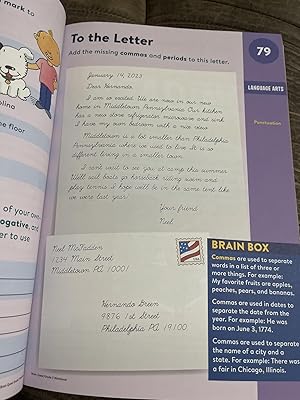 mark to
lina
e floor
of your own
rogative, and
er to use
To the Letter
Add the missing commas and periods to this letter.
79
LANGUAGE ARTS
Punctuation
January 14, 2023
Dear Hernando,
I am so excited We are now in our new
home in Middletown Pennsylvania Our kitchen
has a new stove refrigerator microwave and sink
I have my own bedroom with a nice view
Middletown is a lot smaller than Philadelphia
Pennsylvania where we used to live It is so
different living in a smaller town
I can't wait to see you at camp this summer
We'll sail boats go horseback riding swim and
play tennis I hope we'll be in the same tent like
we were last year
Your friend
Neel
Neel McFadden
1234 Main Street
Middletown PA 10001
Hernando Green
9876 1st Street
Philadelphia PA 19100
BRAIN BOX
Commas are used to separate
words in a list of three or
more things. For example:
My favorite fruits are apples,
peaches, pears, and bananas.
Commas are used in dates to
separate the date from the
year. For example: He was
born on June 3, 1774.
Commas are used to separate
the name of a city and a
state. For example: There was
a fair in Chicago, Illinois.